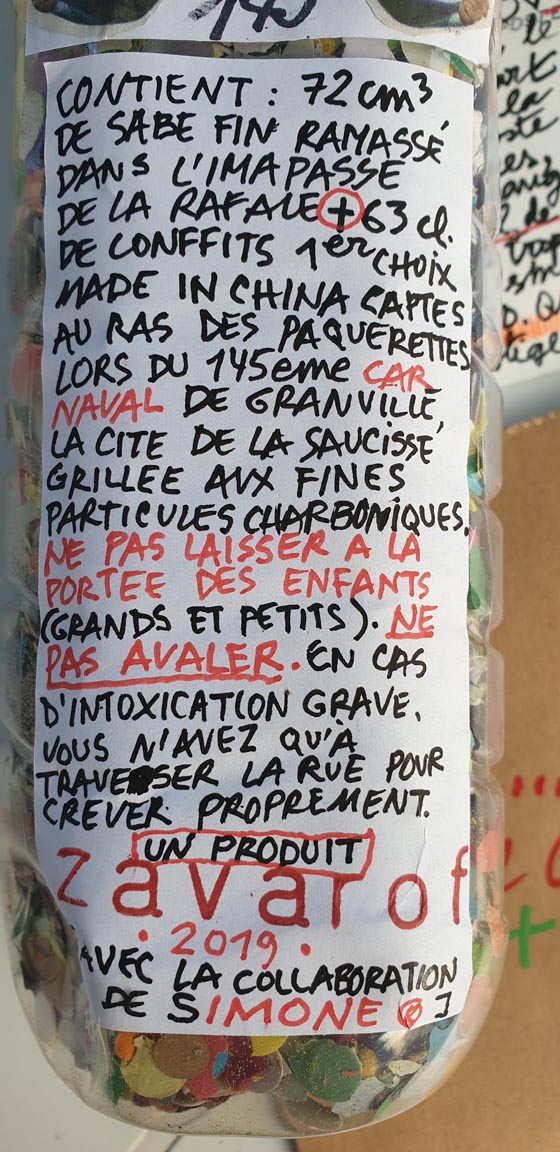 145
CONTIENT : 72 cm³
DE SABE FIN RAMASSÉ
DANS L'IMAPASSE
DE LA RAFALE + 63 cl.
DE CONFFITS 1er CHOIX
MADE IN CHINA CAPTES
AU RAS DES PAQUERETTES
LORS DU 145eme CAR
NAVAL DE GRANVILLE,
LA CITE DE LA SAUCISSE
GRILLEE AUX FINES
PARTICULES CHARBONIQUES.
NE PAS LAISSER A LA
PORTEE DES ENFANTS
(GRANDS ET PETITS). NE
PAS AVALER. EN CAS
D'INTOXICATION GRAVE,
VOUS N'AVEZ QU'À
TRAVERSER LA RUE POUR
CREVER PROPREMENT.
UN PRODUIT
zavarof
• 2019 •
AVEC LA COLLABORATION
DE SIMONE
le
la